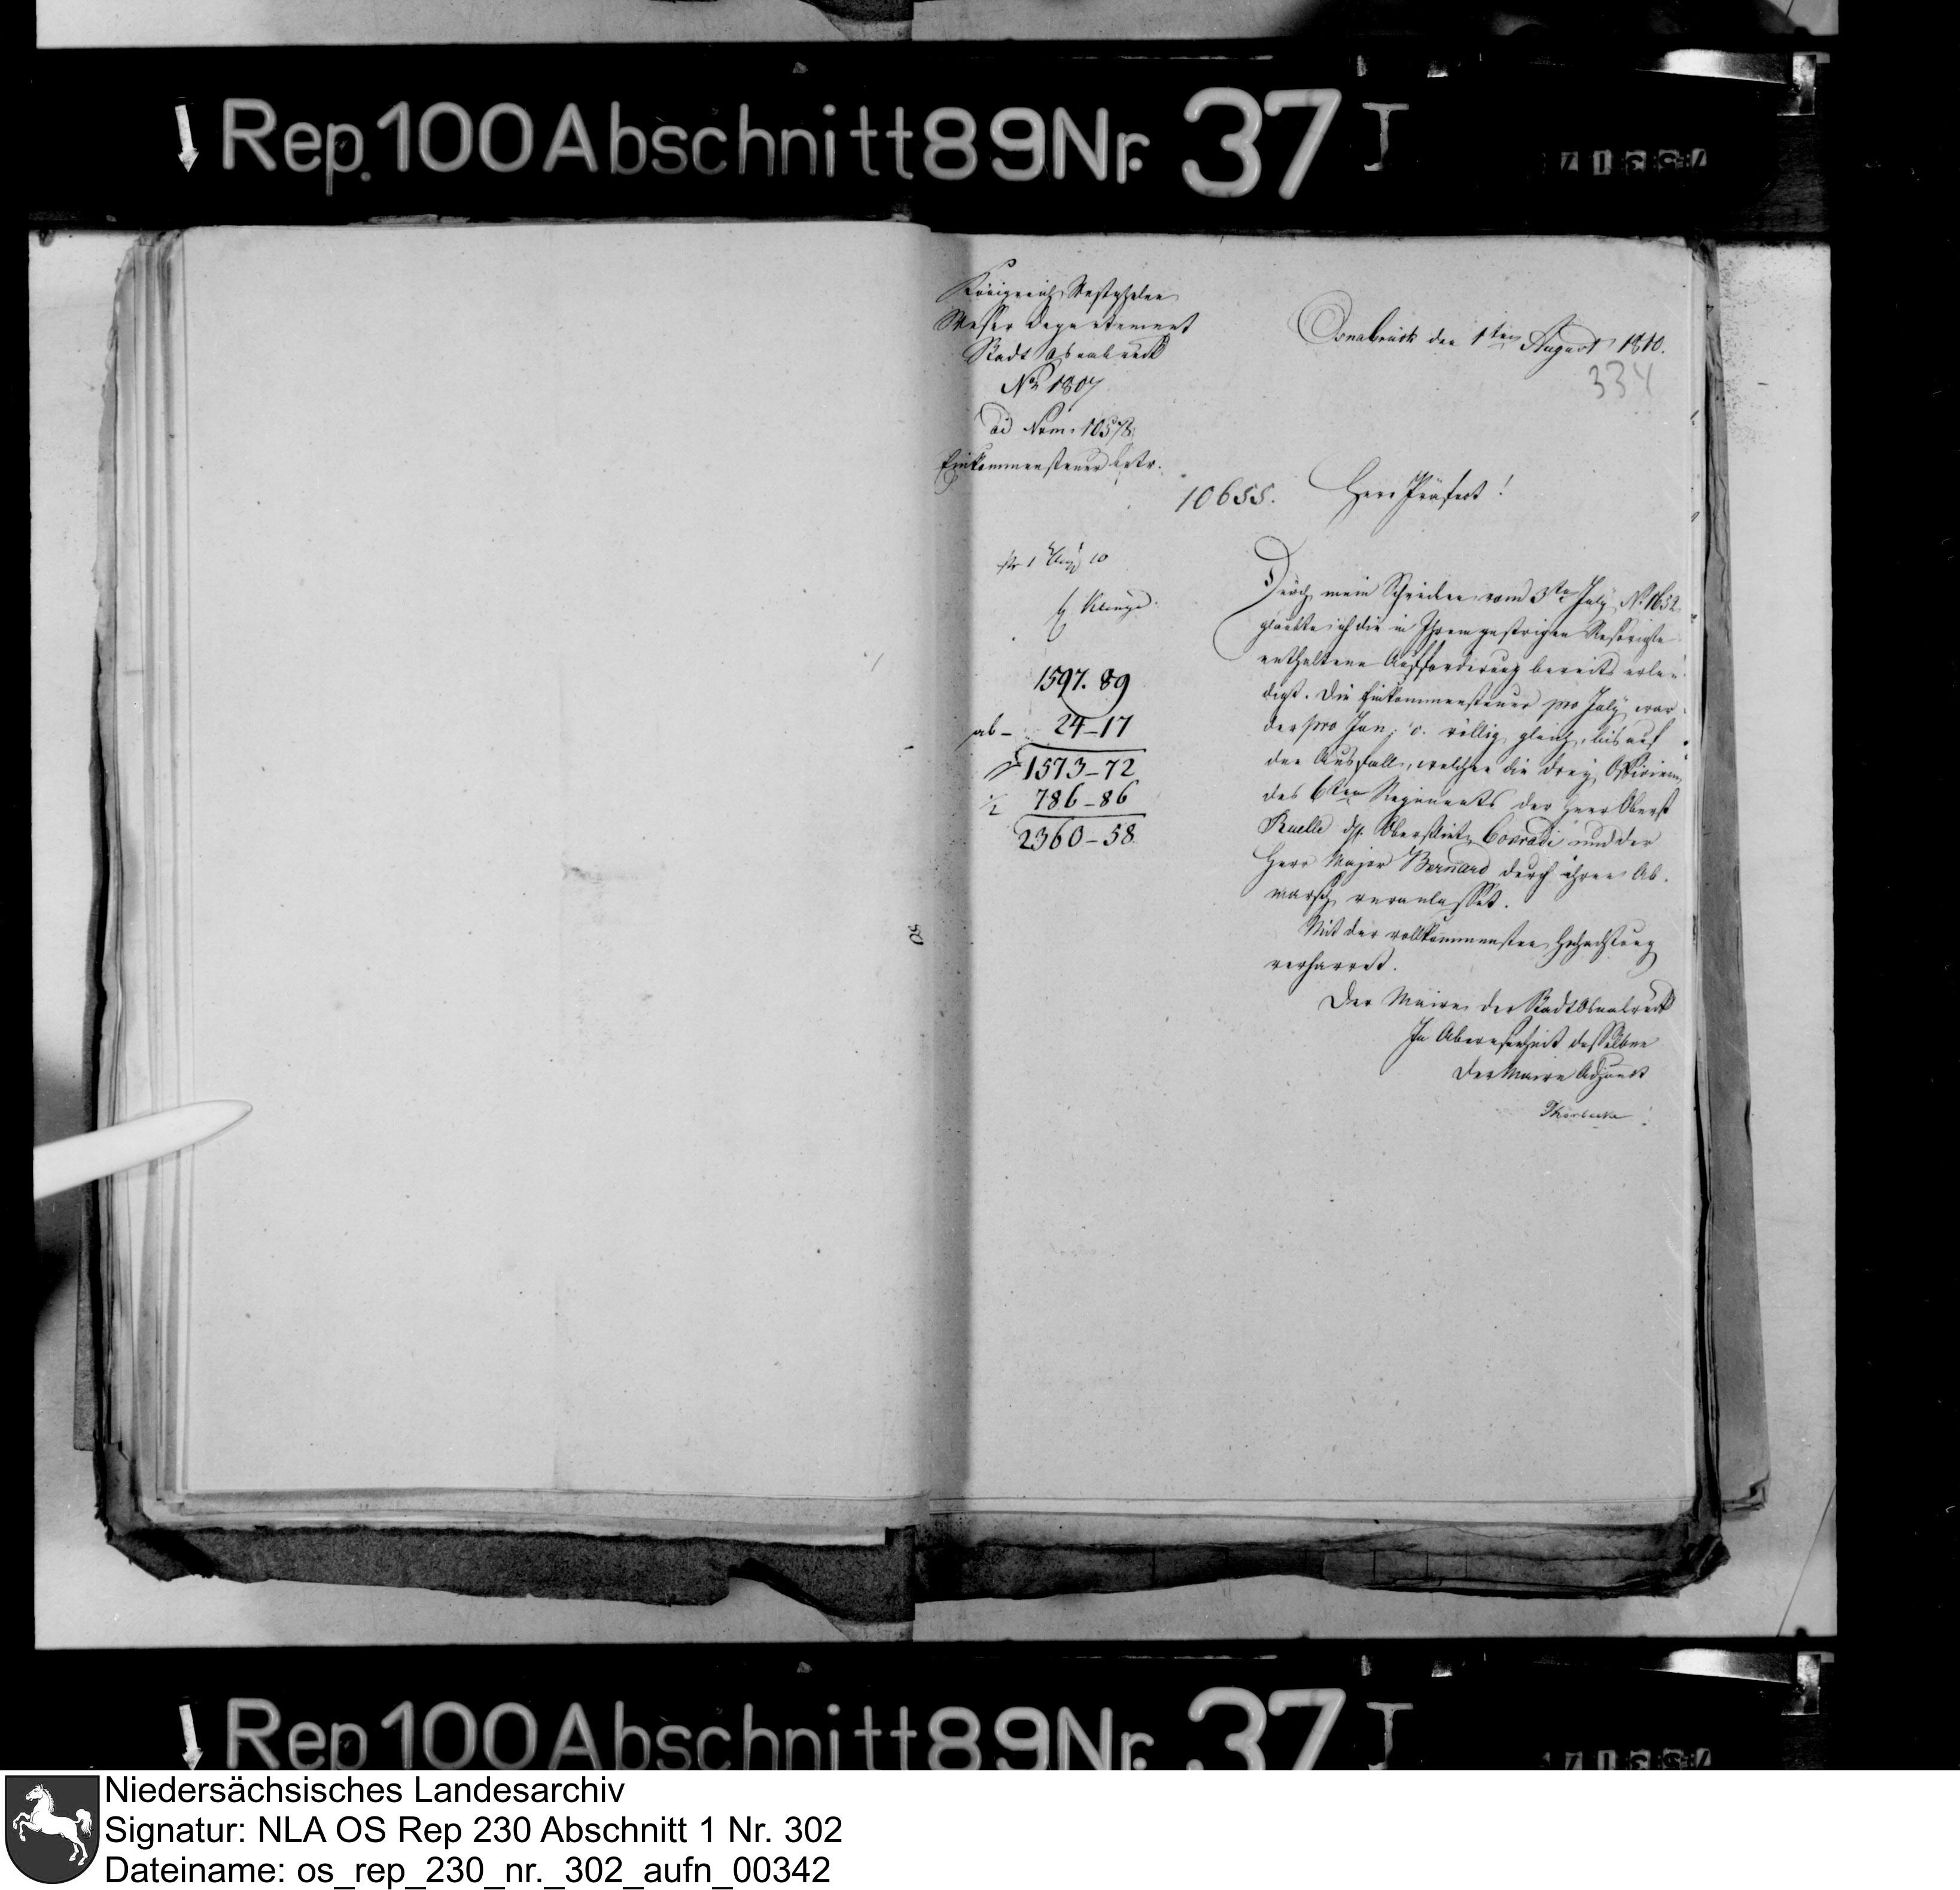 Rep. 100 Abschnitt 89 Nr. 37 I
Königreich Westphalen
Weser Departement
Stadt Osnabrück
No. 1807
ad Num. 10578.
Einkommensteuer betr.
Osnabrück den 1ten August 1810.
334
10655.
Herr Präfect!
1 Aug 10
1597. 89
ab - 24-17
1573-72
1/2 786-86
2360-58
Durch mein Schreiben vom 3ten July No. 1652
glaubte ich die in Ihrem gestrigen Rescripte
enthaltene Aufforderung bereits erle-
digt. Die Einkommensteuer pro July war
der pro Jan. c. völlig gleich, bis auf
den Ausfall, welchen die drey Officiere
des 6ten Regiments der Herr Oberst
Ruelle, Oberstlieut. Conradi und der
Herr Major Bernard durch ihren Ab-
marsch veranlasset.
Mit der vollkommensten Hochachtung
verharret.
Der Maire der Stadt Osnabrück
In Abwesenheit desselben
Der Maire Adjunct
Thorbecke
OS
Rep 100 Abschnitt 89 Nr. 37 I
Niedersächsisches Landesarchiv
Signatur: NLA OS Rep 230 Abschnitt 1 Nr. 302
Dateiname: os_rep_230_nr._302_aufn_00342